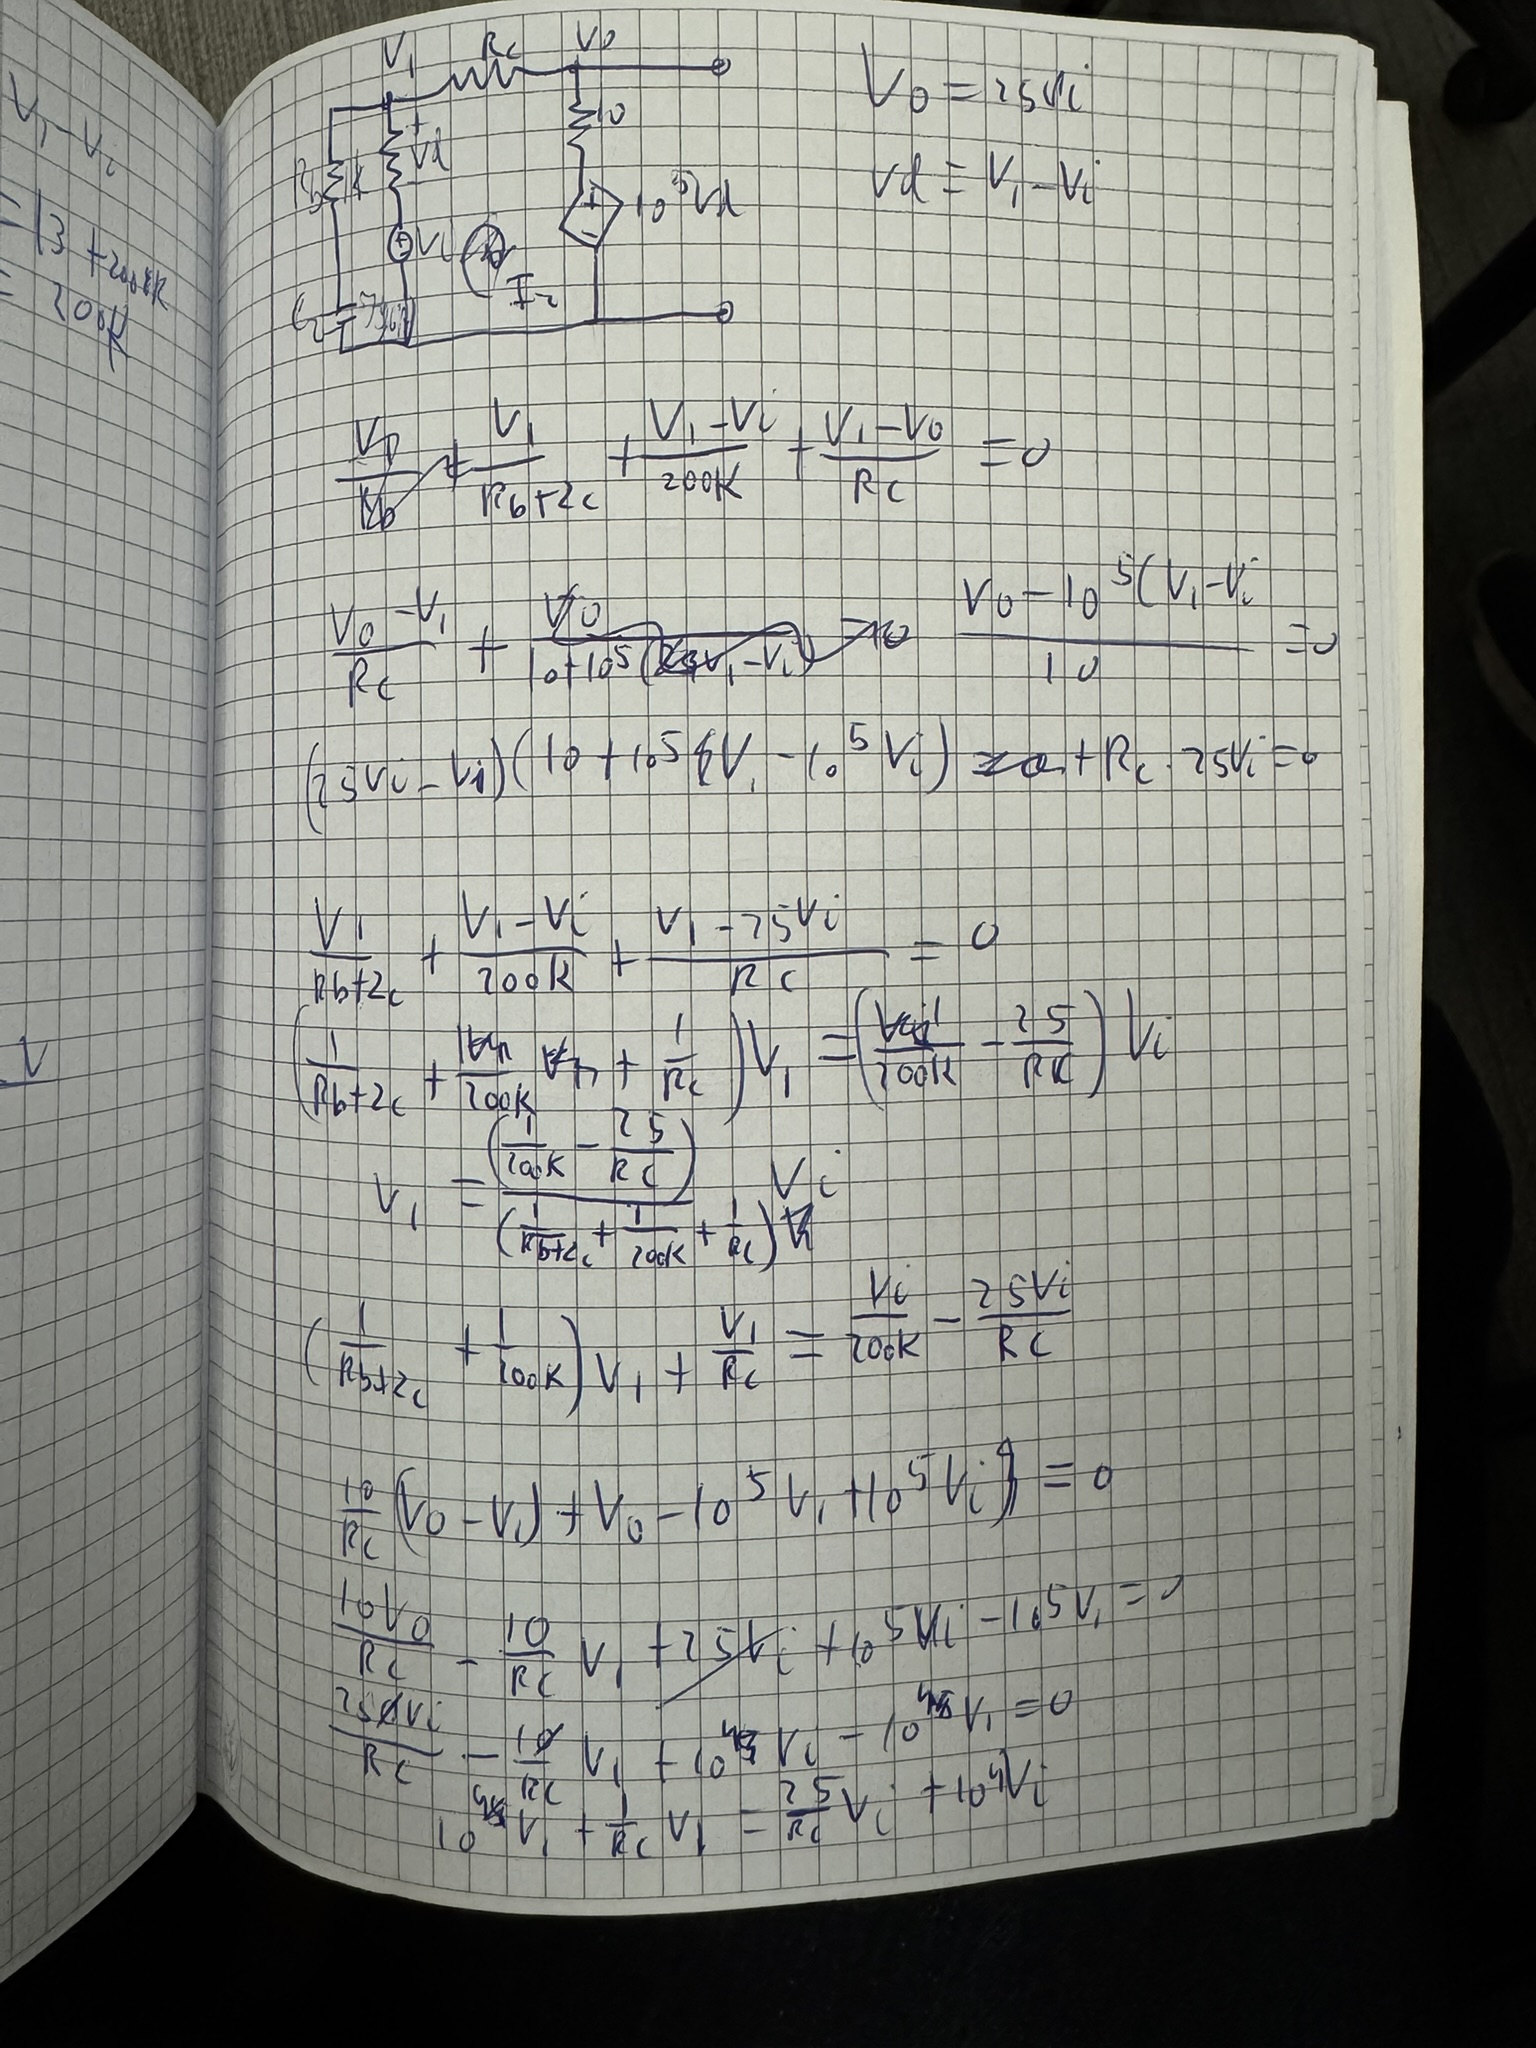 V₁ - Vi
= 13 + 200kR
= 200k
V₁ Rc V0
+ Vd 10
Rb 1k
Vi I₂ 10⁵Vd
V0 = 25Vi
Vd = V₁ - Vi
V₁/(Rb+Zc) + (V₁-Vi)/200K + (V₁-V0)/Rc = 0
(V0-V₁)/Rc + (V0-10⁵(V₁-Vi)/10 = 0
(25Vi - Vi)(10 + 10⁵V₁ - 10⁵Vi) + Rc · 25Vi = 0
V₁/(Rb+Zc) + (V₁-Vi)/200K + (V₁-25Vi)/Rc = 0
(1/(Rb+Zc) + /200K + 1/Rc)V₁ = (/200K - 25/RK) Vi
V₁ = (1/200K - 25/Rc)/(1/(Rb+Zc) + 1/200K + 1/Rc) Vi
(1/(Rb+Zc) + 1/200K)V₁ + V₁/Rc = Vi/200K - 25Vi/Rc
10/Rc (V0 - V₁) + V0 - 10⁵V₁ + 10⁵Vi) = 0
10V0/Rc - 10/Rc V₁ + 25Vi + 10⁵Vi - 10⁵V₁ = 0
250Vi/Rc - 10/Rc V₁ + 10⁴Vi - 10⁴V₁ = 0
10⁴V₁ + 1/Rc V₁ = 25/Rc Vi + 10⁴Vi